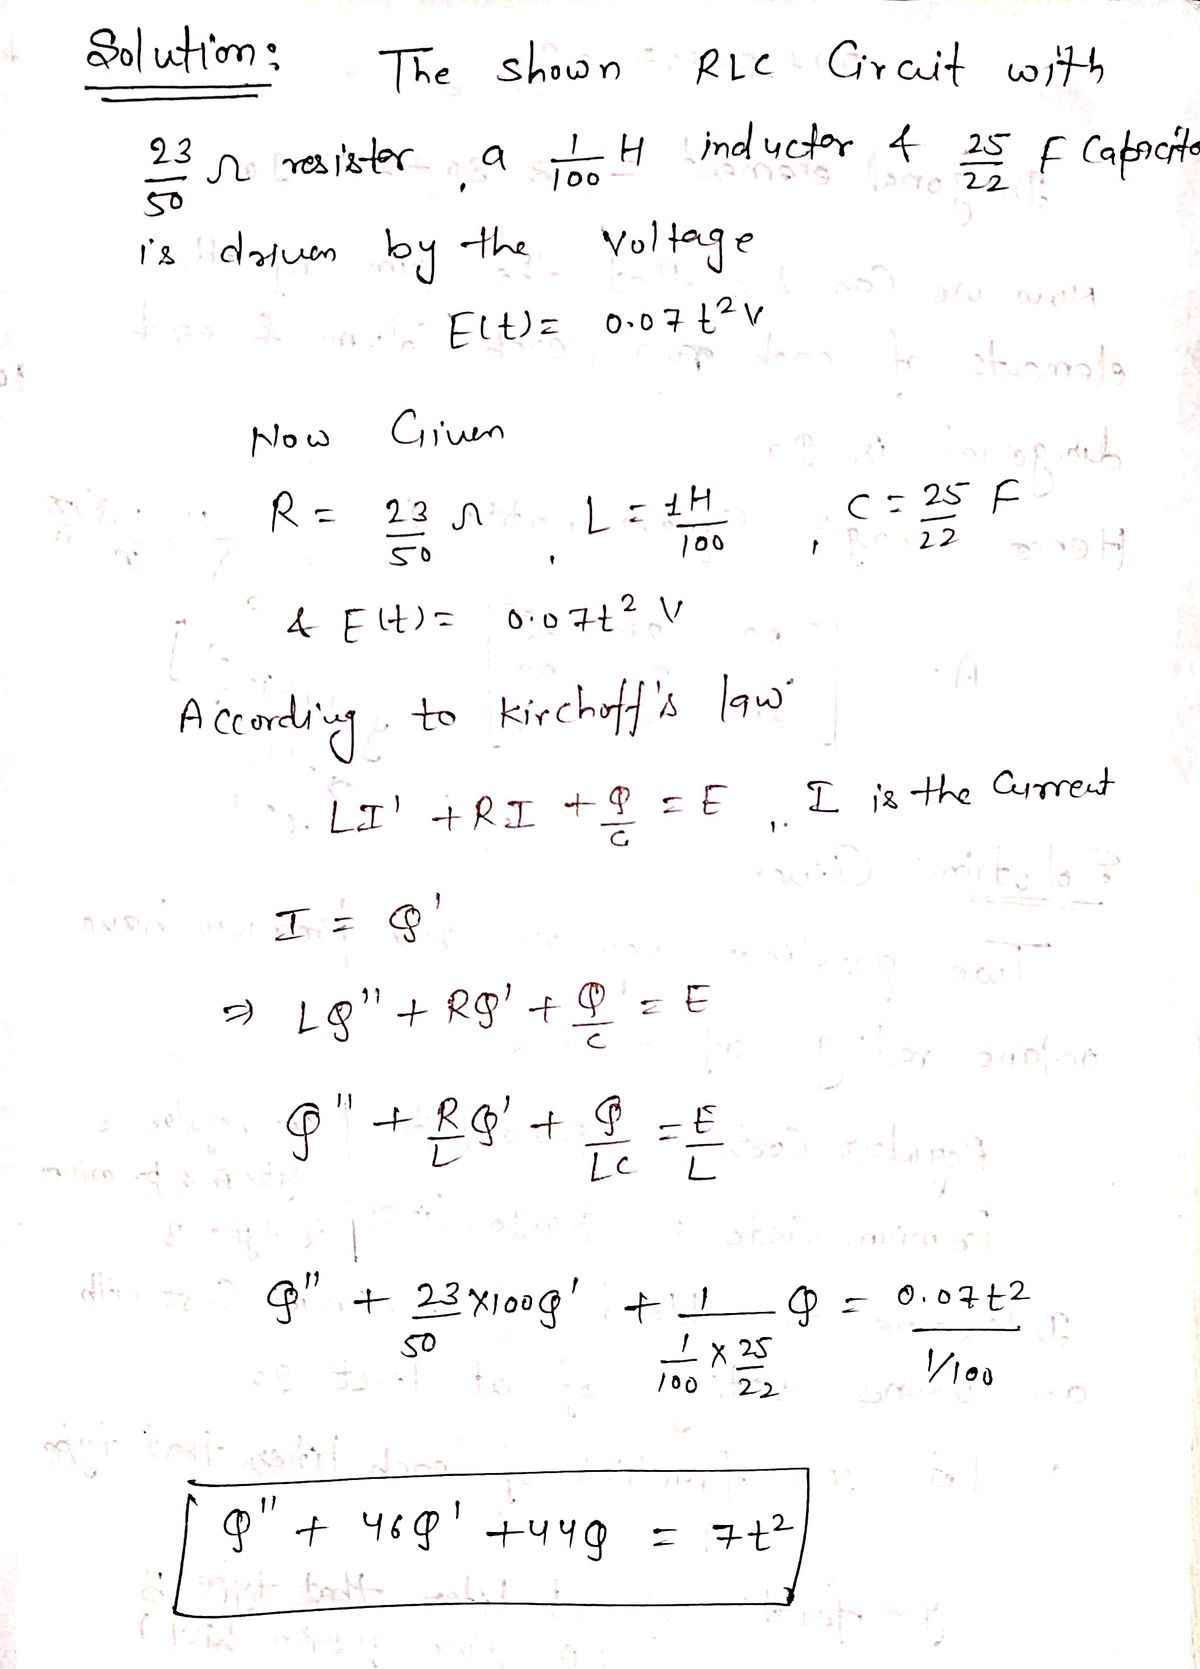 Solution:
The shown RLC Circuit with
23/50 Ω resister, a 1/100 H inductor & 25/22 F Capacito
is driven by the Voltage
E(t) = 0.07 t² V
Now Given
R = 23/50 Ω, L = 1H/100, C = 25/22 F
& E(t) = 0.07t² V
According to Kirchoff's law
LI' + RI + Q/C = E, I is the Current
I = Q'
⇒ LQ'' + RQ' + Q/C = E
Q'' + R/L Q' + Q/LC = E/L
Q'' + 23/50 ×100Q' + 1/(1/100 × 25/22) Q = 0.07t2/(1/100)
Q'' + 46Q' + 44Q = 7t²